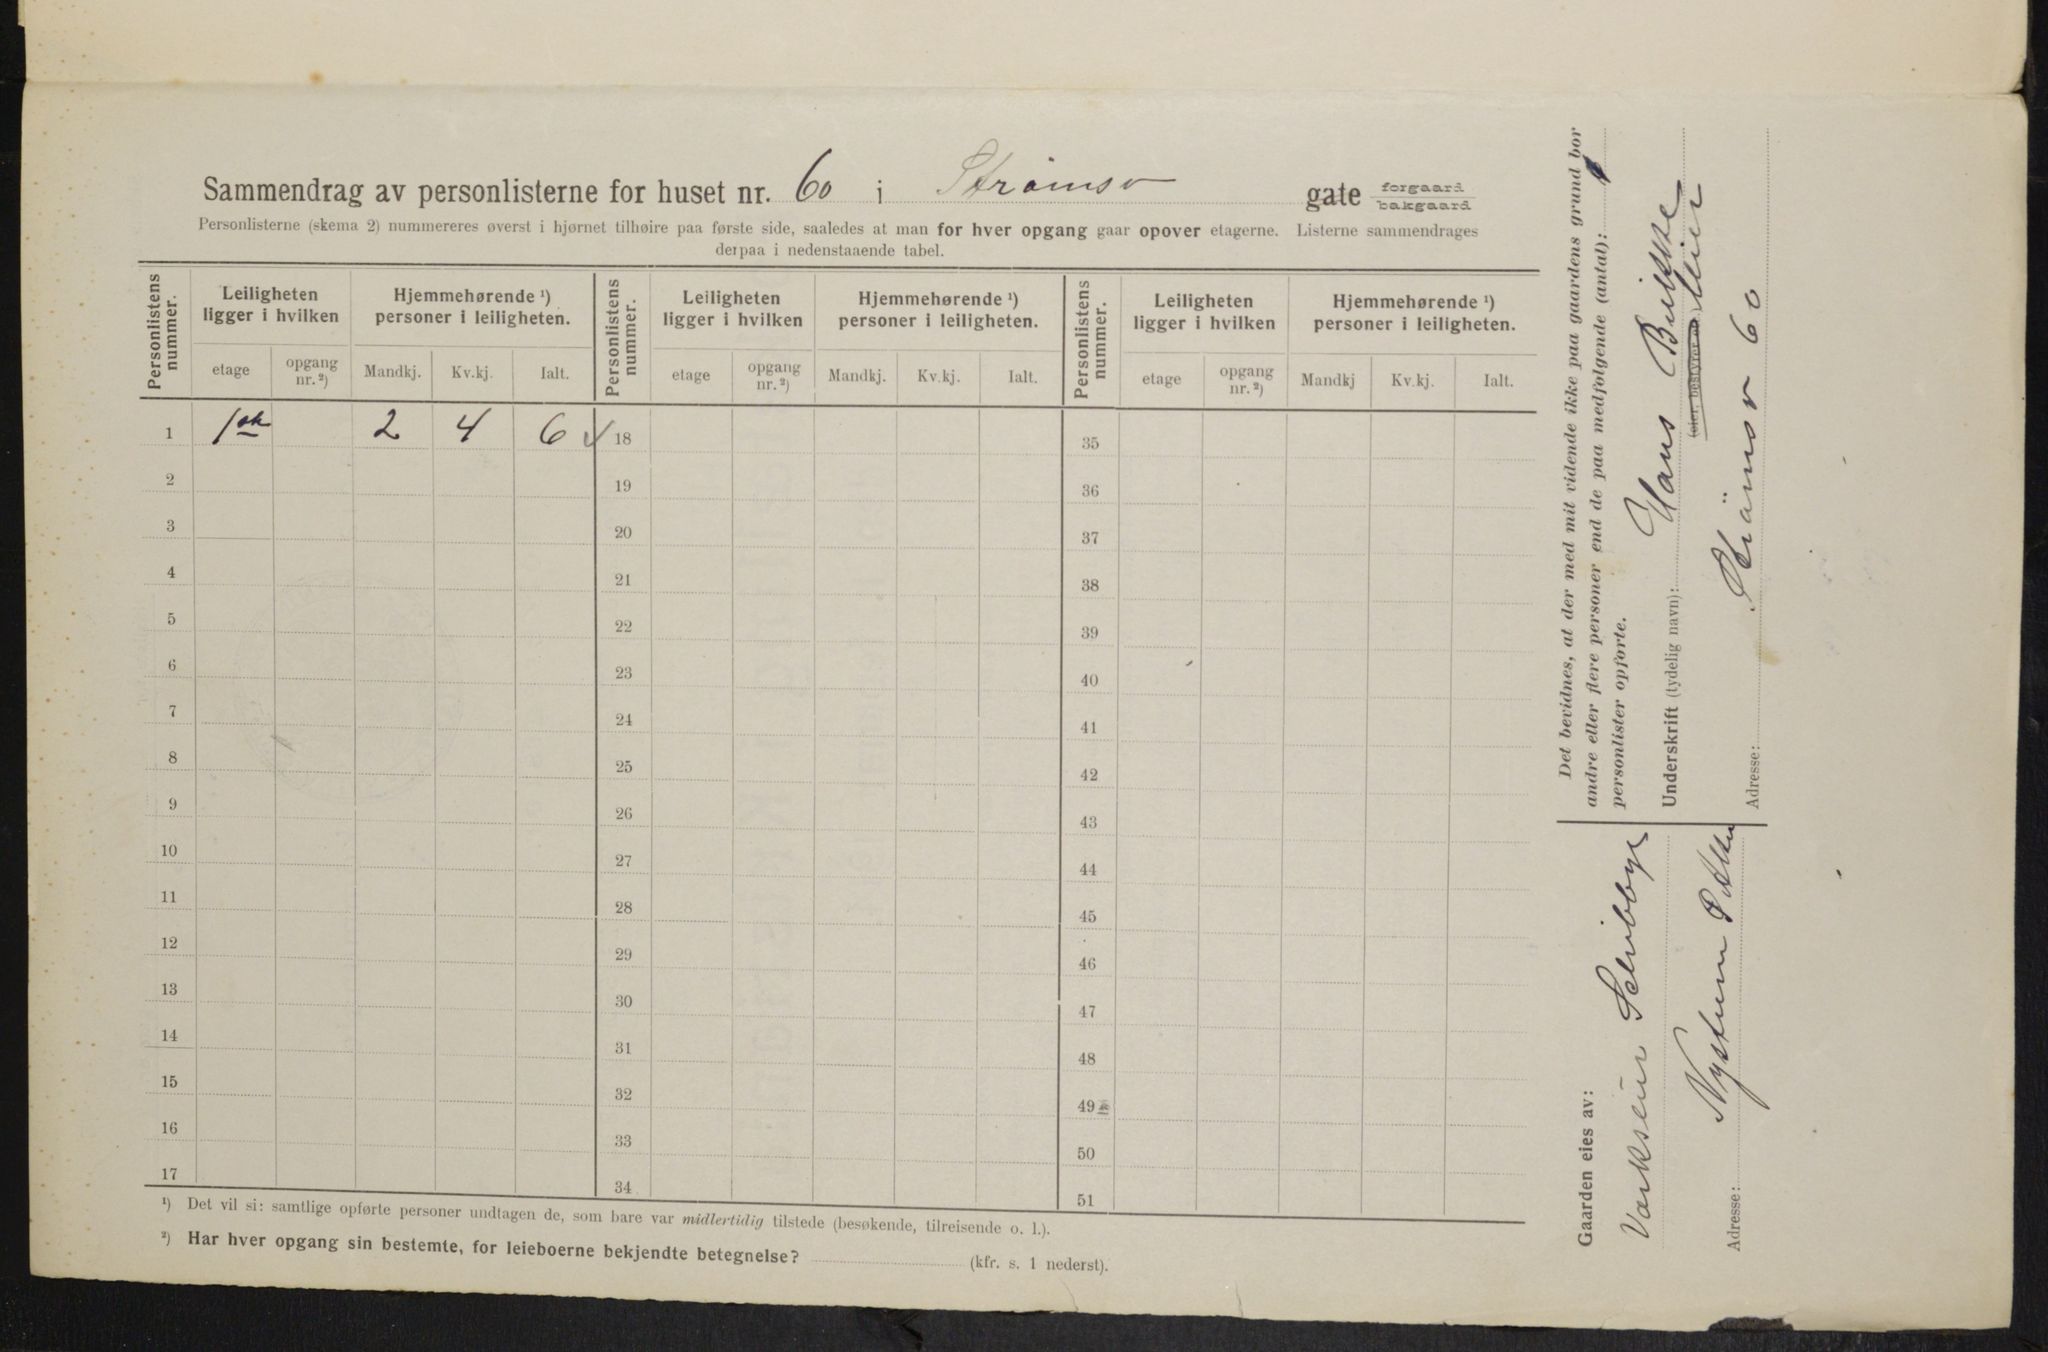 Sammendrag av personlisterne for huset nr. 60 i Strømsv gate forgaard bakgaard
Personlisterne (skema 2) nummereres øverst i hjørnet tilhøire paa første side, saaledes at man for hver opgang gaar opover etagerne. Listerne sammendrages
derpaa i nedenstaaende tabel.
Personlistens nummer. Leiligheten ligger i hvilken Hjemmehørende ¹) personer i leiligheten. Personlistens nummer. Leiligheten ligger i hvilken Hjemmehørende ¹) personer i leiligheten. Personlistens nummer. Leiligheten ligger i hvilken Hjemmehørende ¹) personer i leiligheten.
etage opgang nr. ²) Mandkj. Kv.kj. Ialt. etage opgang nr. ²) Mandkj. Kv.kj. Ialt. etage opgang nr. ²) Mandkj Kv.kj. Ialt.
1 1ste 2 4 6 18 35
2 19 36
3 20 37
4 21 38
5 22 39
6 23 40
7 24 41
8 25 42
9 26 43
10 27 44
11 28 45
12 29 46
13 30 47
14 31 48
15 32 49
16 33 50
17 34 51
¹) Det vil si: samtlige opførte personer undtagen de, som bare var midlertidig tilstede (besøkende, tilreisende o. l.).
²) Har hver opgang sin bestemte, for leieboerne bekjendte betegnelse? (kfr. s. 1 nederst).
Det bevidnes, at der med mit vidende ikke paa gaardens grund bor
andre eller flere personer end de paa medfølgende (antal): 1
personlister opførte.
Underskrift (tydelig navn): Hans
(eier, bestyrer
Adresse: Strömsv 60
Gaarden eies av:
Selvbygg
Adresse: